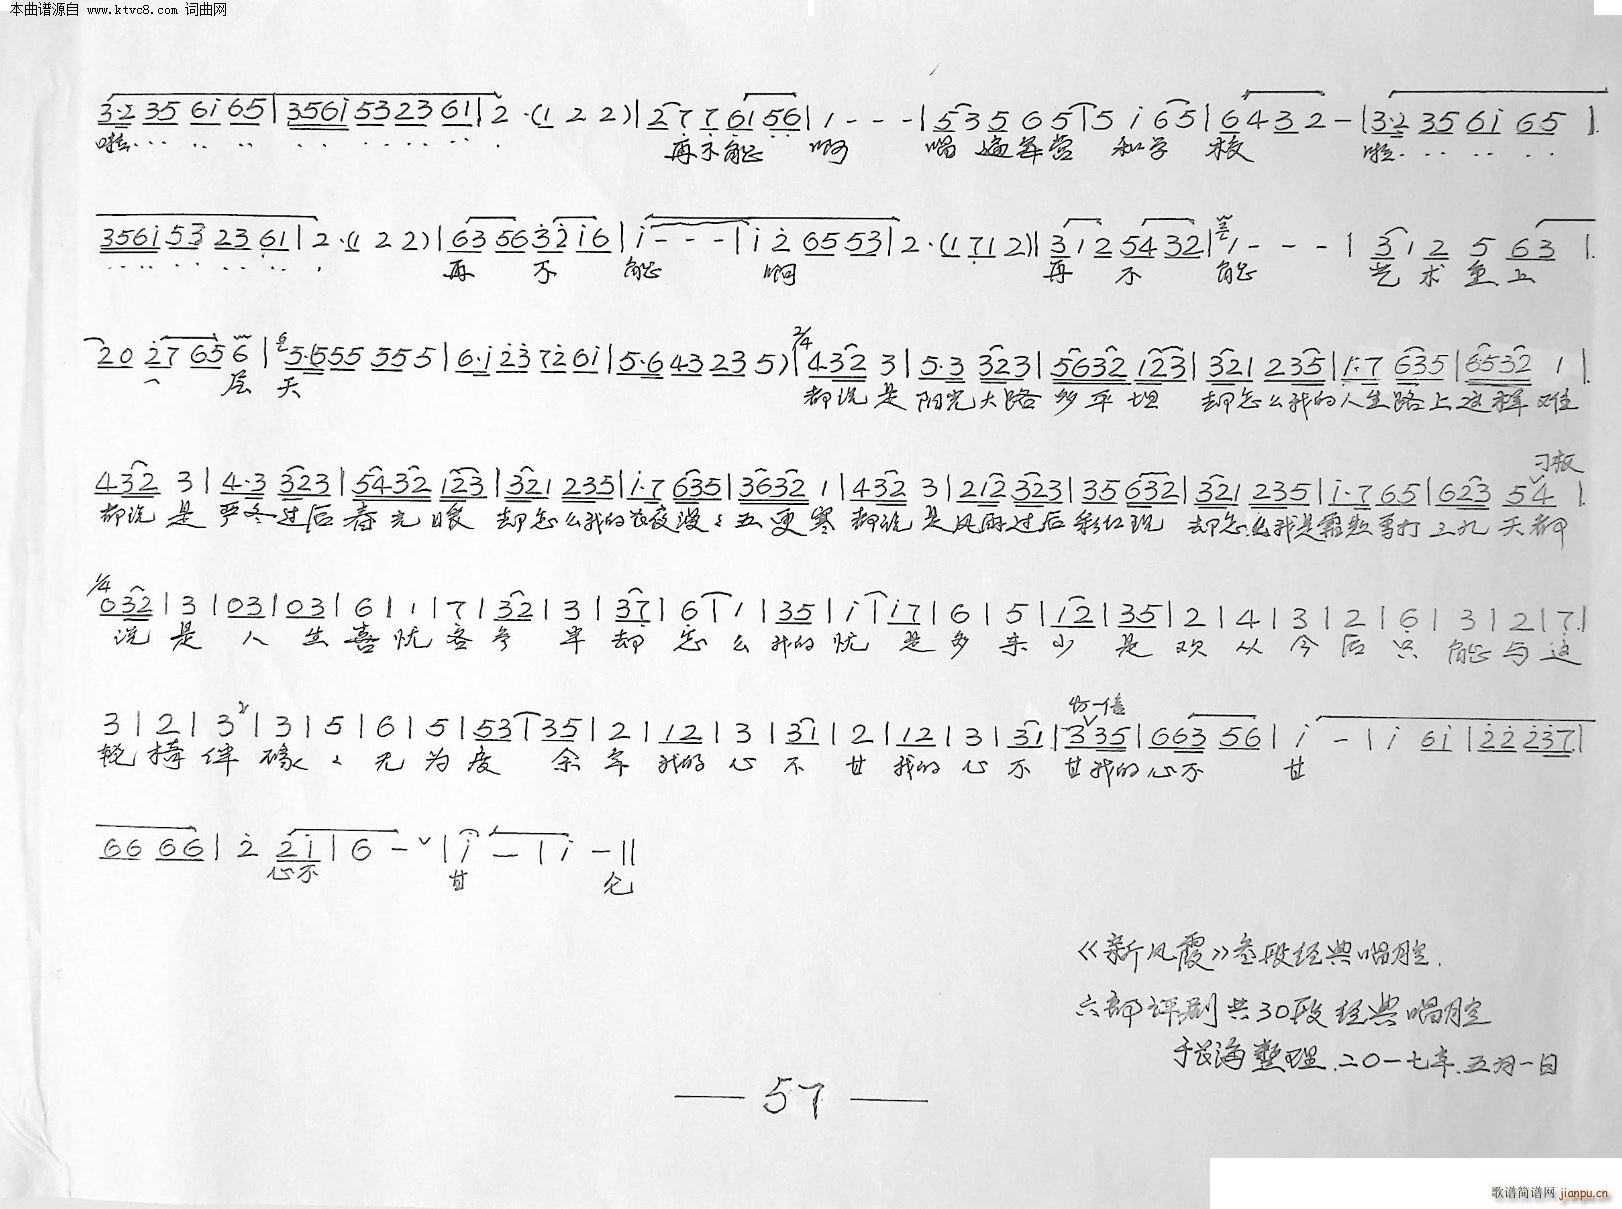 本曲谱源自 www.ktvc8.com 词曲网
3·2 35 6i 65 | 356i 5323 61 | 2 · (1 2 2) | 2 7 7 61 56 | 1 - - - | 5 3 5 6 5 | 5 i 6 5 | 6 4 3 2 - | 3·2 35 6i 65 |
啦 再不能 啊 唱遍军营 和学校 啦
356i 53 23 61 | 2 · (1 2 2) | 63 56 3 2 i 6 | i - - - | i 2 65 53 | 2 · (1 7 1 2) | 3 1 2 5 4 3 2 | 1 - - - | 3 1 2 5 6 3 |
再 不 能 啊 再 不 能 艺 术 重 上
2 0 2 7 6 5 6 | 5·555 555 | 6·i 23 72 6i | 5·6 43 23 5) | 2/4 432 3 | 5·3 323 | 5632 123 | 321 235 | 1·7 635 | 6532 1 |
层 天 都说是阳光大路多平坦 却怎么我的人生路上这样难
432 3 | 4·3 323 | 5432 123 | 321 235 | i·7 635 | 3632 1 | 432 3 | 212 323 | 35 632 | 321 235 | i·7 65 | 623 5 4 |
都说是严冬过后春光暖 却怎么我的长夜漫漫五更寒 都说是风雨过后彩虹现 却怎么我是霜煞 打 天都
1/4 032 | 3 | 03 | 03 | 6 | 1 | 7 | 32 | 3 | 37 | 6 | 1 | 35 | i | i7 | 6 | 5 | 12 | 35 | 2 | 4 | 3 | 2 | 6 | 3 | 2 | 7 |
说是 人生喜忧各参半 却怎么我的忧是多来少是欢 从今后只能与这
3 | 2 | 3 | 3 | 5 | 6 | 5 | 53 | 35 | 2 | 12 | 3 | 31 | 2 | 12 | 3 | 31 | 335 | 663 56 | i - | i 6i | 22 237 |
轮椅伴 碌碌无为度余年 我的心不甘 我的心不甘 我的心不 甘
66 66 | 2 2i | 6 - | i - | i - ||
心不 甘
《新凤霞》叁段经典唱腔.
六部评剧共30段经典唱腔
于长海整理.二〇一七年.五月一日
— 57 —
歌谱简谱网 jianpu.cn